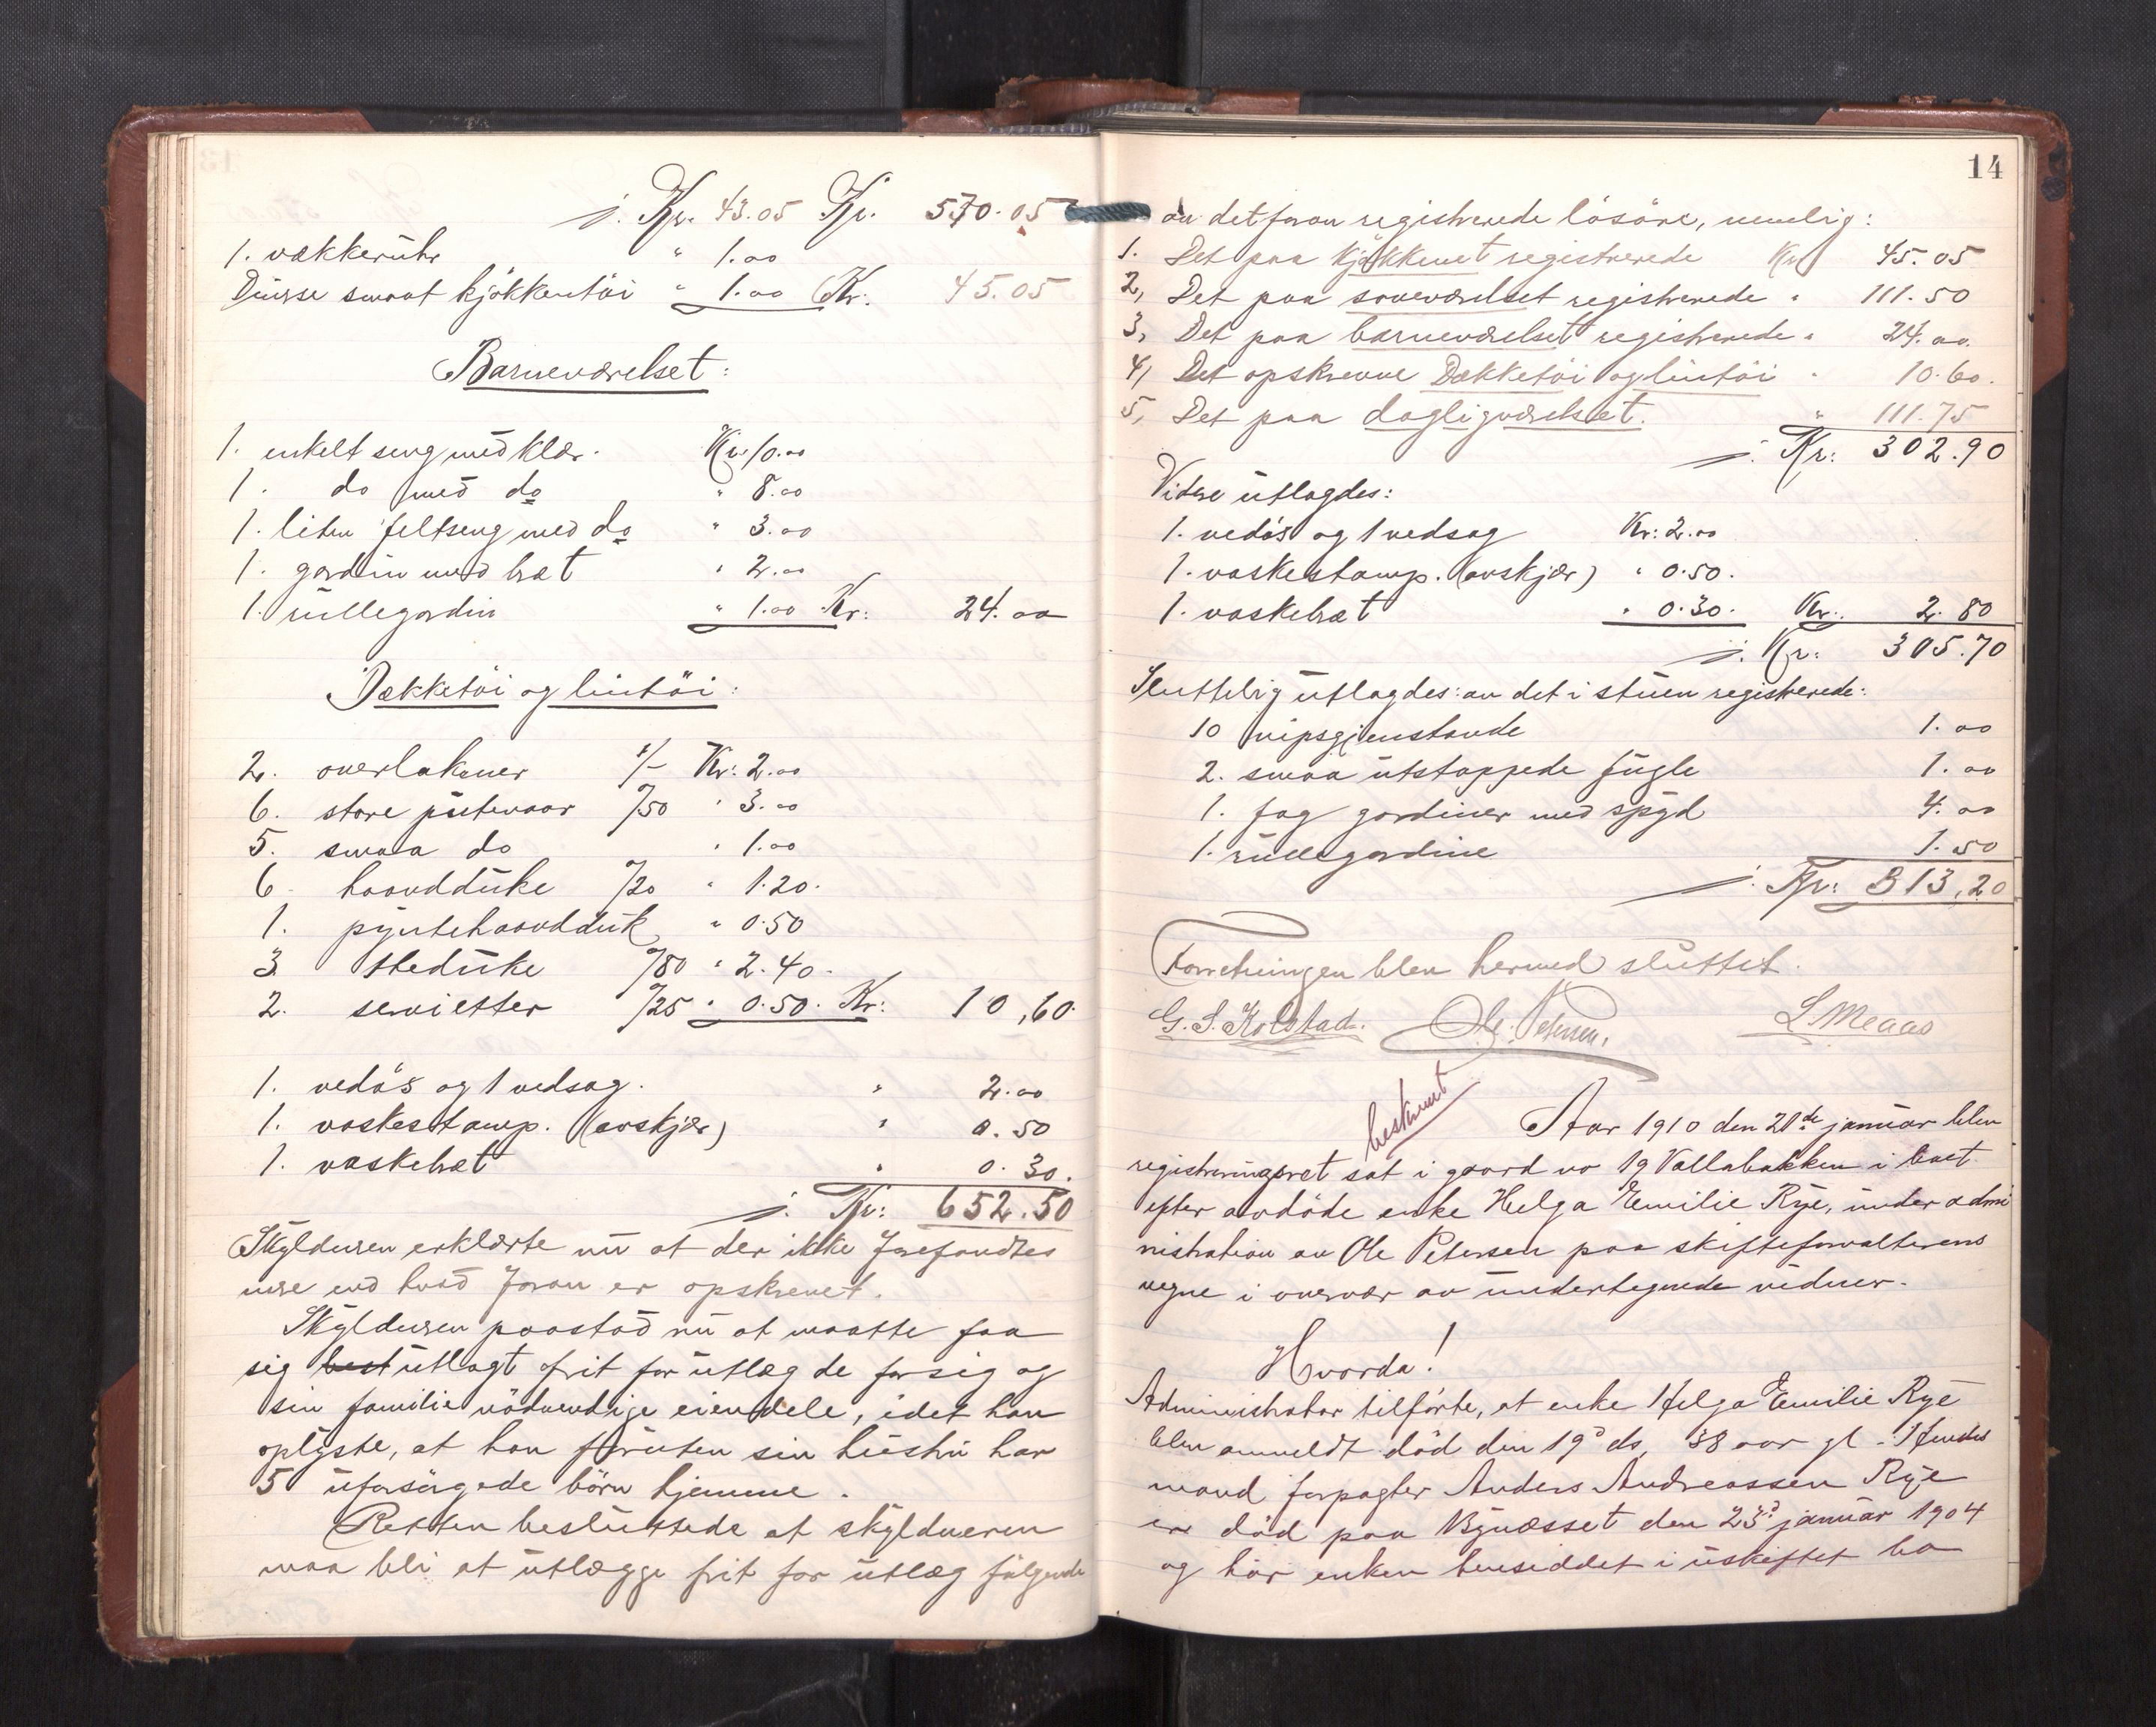 ÷ Kr. 43.05 Kr. 570.05
1. vækkeruhr " 1.00
Diverse smaat kjökkentöi " 1.00 Kr: 45.05
Barneværelset:
1. enkelt seng med klær. Kr. 10.00
1. do med do " 8.00
1. liten feltseng med do " 3.00
1. gardin med bræt " 2.00
1. rullegardin " 1.00 Kr: 24.00
Dækketöi og lintöi:
2. overlakener 1/- Kr: 2.00
6. store putevaar /50 " 3.00
5. smaa do " 1.00
6 haandduke /20 " 1.20.
1. pyntehaandduk " 0.50
3. tteduke /80 " 2.40.
2. servietter /25 " 0.50. Kr: 10,60.
1. vedös og 1 vedsag. " 2.00
1. vaskestamp. (avskjær) " 0.50
1. vaskebræt " 0.30.
÷ Kr: 652.50
Skyldneren erklærte nu at der ikke forefandtes
mere end hvad foran er opskrevet.
Skyldneren paastod nu at maatte faa
sig best utlagt frit for utlæg de for sig og
sin familie nödvendige eiendele, idet han
oplyste, at han foruten sin hustru har
5 uforsörgede börn hjemme.
Retten besluttede at skyldneren
maa bli at utlægge frit for utlæg fölgende
14
av det foran registrerede lösöre, nemlig:
1. Det paa kjökkenet registrerede Kr 45.05
2, Det paa soveværelset registrerede " 111.50
3, Det paa barneværelset registrerede " 24.00.
4, Det opskrevne Dækketöi og lintöi " 10.60.
5, Det paa dagligværelset. " 111.75
÷ Kr: 302.90
Videre utlagdes:
1. vedös og 1 vedsag Kr: 2.00
1. vaskestamp. (avskjær) " 0.50.
1. vaskebræt " 0.30. Kr: 2.80
÷ Kr: 305.70
Sluttelig utlagdes: av det i stuen registrerede:
10 nipsgjenstande 1.00
2. smaa utstoppede fugle 1.00
1. fag gardiner med spyd 4.00
1. rullegardine 1.50
÷ Kr: 313,20
Forretningen blev hermed sluttet.
G. S. Kolstad. Ole Petersen. L. Meaas
beskrevet
Aar 1910 den 21de januar blev
registreringsret sat i gaard no 19 Vollabakken i boet
efter avdöde enke Helga Emilie Rye, under admi
nistration av Ole Petersen paa skifteforvalterens
vegne i overvær av undertegnede vidner.
Hvorda!
Administrator tilförte, at enke Helga Emilie Rye
blev anmeldt död den 19d ds, 38 aar gl. Hendes
mand forpagter Anders Andreassen Rye
er död paa Bynæsset den 23d januar 1904
og har enken hensiddet i uskiftet bo